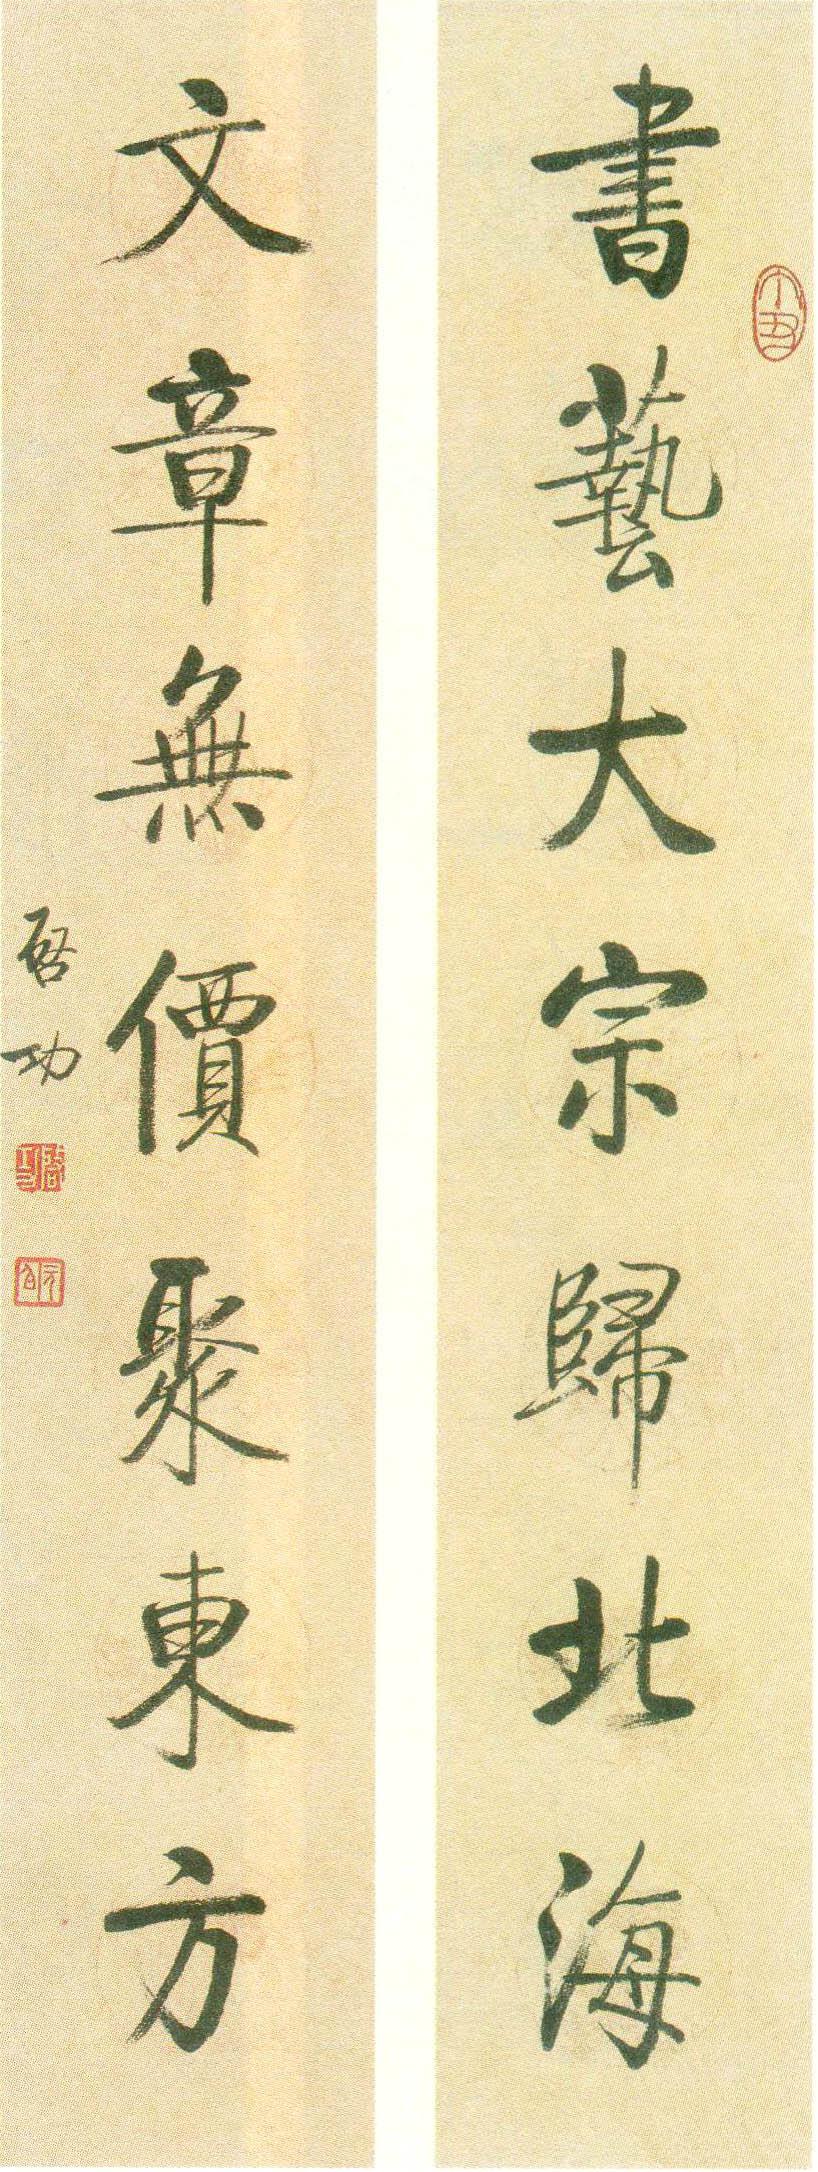 書藝大宗歸北海
文章無價聚東方
啓功
啓功
元白